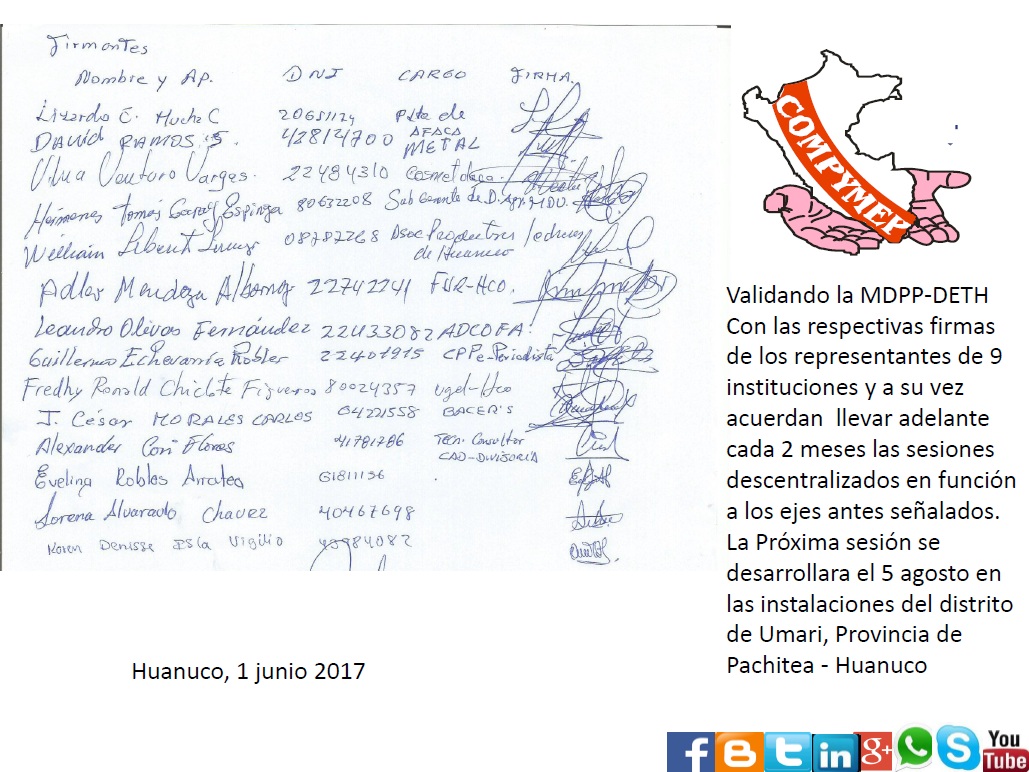 Firmantes
Nombre y Ap. DNI CARGO FIRMA.
Lizardo E. Hucha C 20651124 Pdte de
DAVID RAMOS S. 42814700 AFACA METAL
Vilma Venturo Vargas. 22484310 Cosmetologa
Hermenes Tomás Espinoza 80632208 Sub Gerente de D.
William 08787268 Asoc Productores lecheros
de Huanuco
Adler Mendoza Albornoz 22742241 FUR-HCO.
Leandro Olivas Fernández 22433082 ADCOFA
Guillermo Echevarría Robles 22401975 CPPe-Periodista
Fredhy Ronald Chiclote Figueroa 80024357 Ugel-Hco
J. César MORALES CARLOS 04221558 BACER'S
Alexander Cori Flores 41781786 Tecn. Consultor
CAD-DIVISORIA
Evelina Robles Arratea 61811136
Lorena Alvarado Chavez 40467698
Karen Denisse Isla Vigilio 45984082
COMPYMEP
Validando la MDPP-DETH
Con las respectivas firmas
de los representantes de 9
instituciones y a su vez
acuerdan llevar adelante
cada 2 meses las sesiones
descentralizados en función
a los ejes antes señalados.
La Próxima sesión se
desarrollara el 5 agosto en
las instalaciones del distrito
de Umari, Provincia de
Pachitea - Huanuco
Huanuco, 1 junio 2017
You
Tube